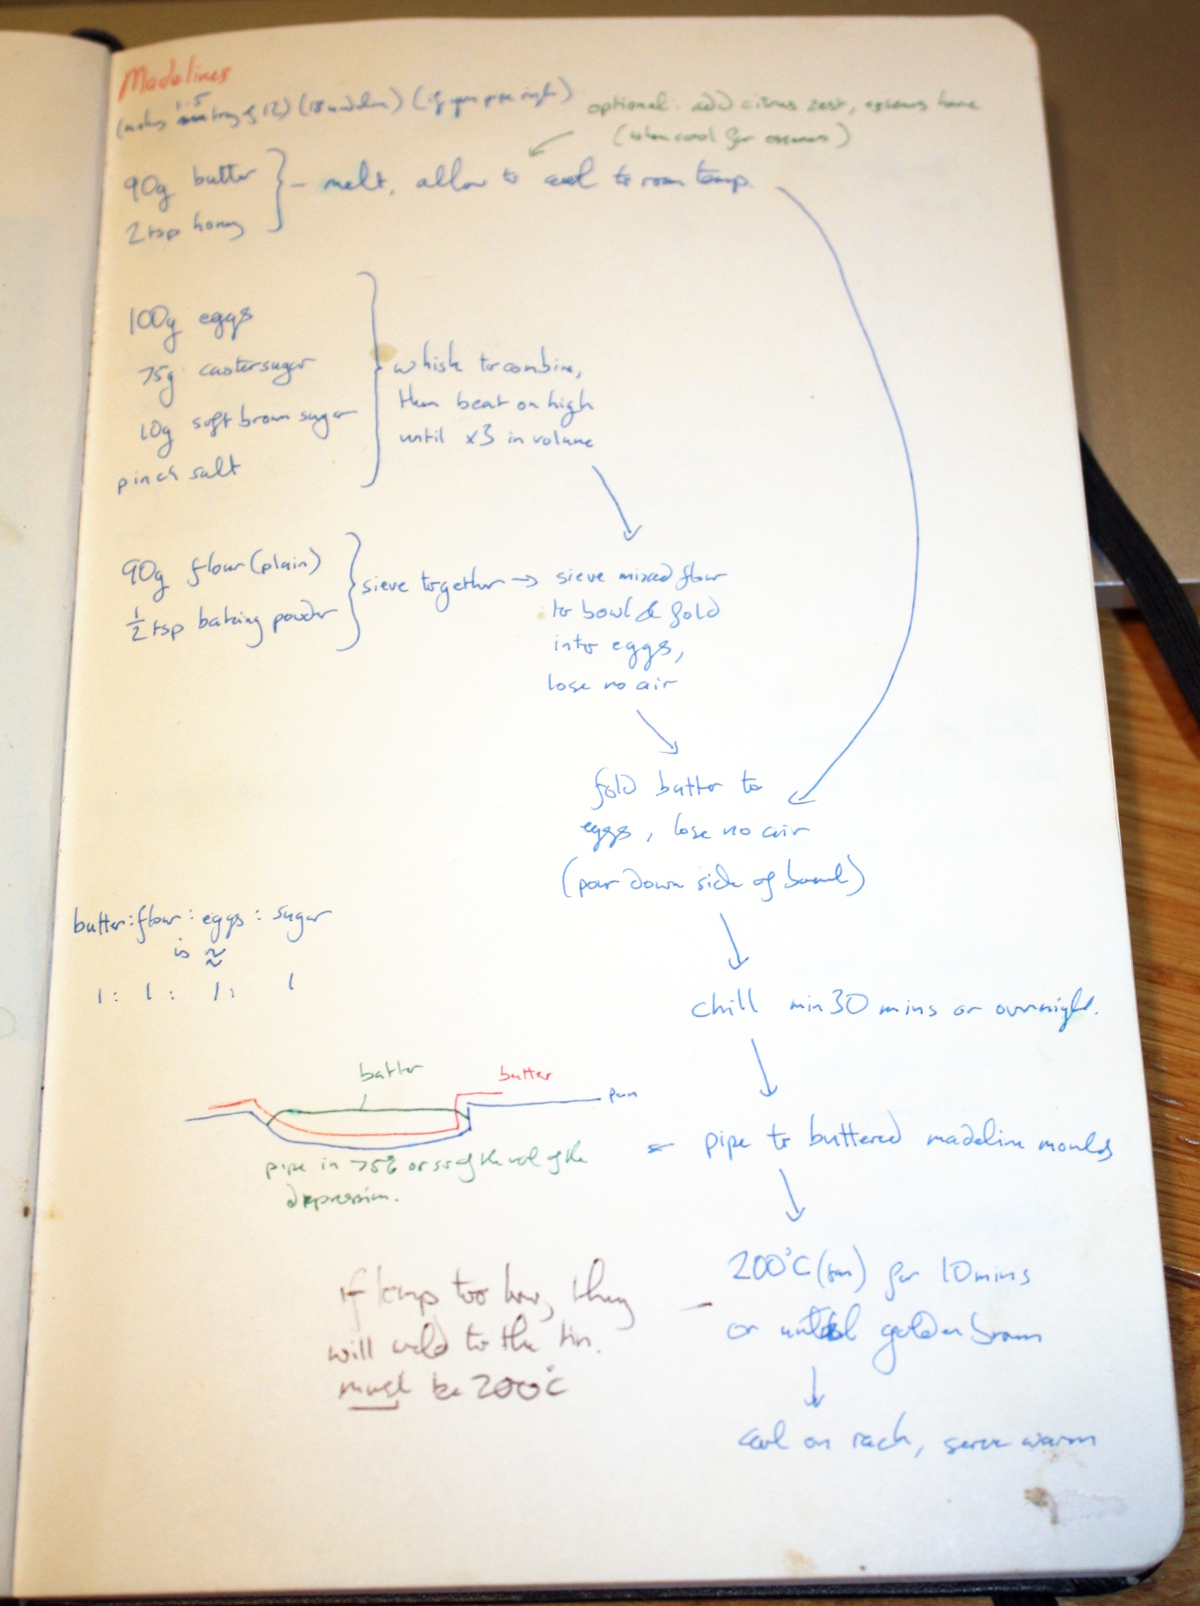 Madelines
(makes 1.5 tray of 12) (18 madelines) (if you pipe right)
optional: add citrus zest, essences here
(when cool for essences)
90g butter
2 tsp honey
- melt, allow to cool to room temp.
100g eggs
75g caster sugar
10g soft brown sugar
pinch salt
whisk to combine,
then beat on high
until x3 in volume
90g flour (plain)
½ tsp baking powder
sieve together → sieve mixed flour
to bowl & fold
into eggs,
lose no air
fold butter to
eggs, lose no air
(pour down side of bowl)
butter: flour: eggs: sugar
is ≈
1: 1: 1: 1
chill min 30 mins or overnight.
batter
butter
pan
pipe to buttered madeline moulds
pipe in 75% or so of the vol of the
depression.
200°C (fan) for 10 mins
or until golden brown
if temp too low, they
will weld to the tin.
must be 200°C
cool on rack, serve warm